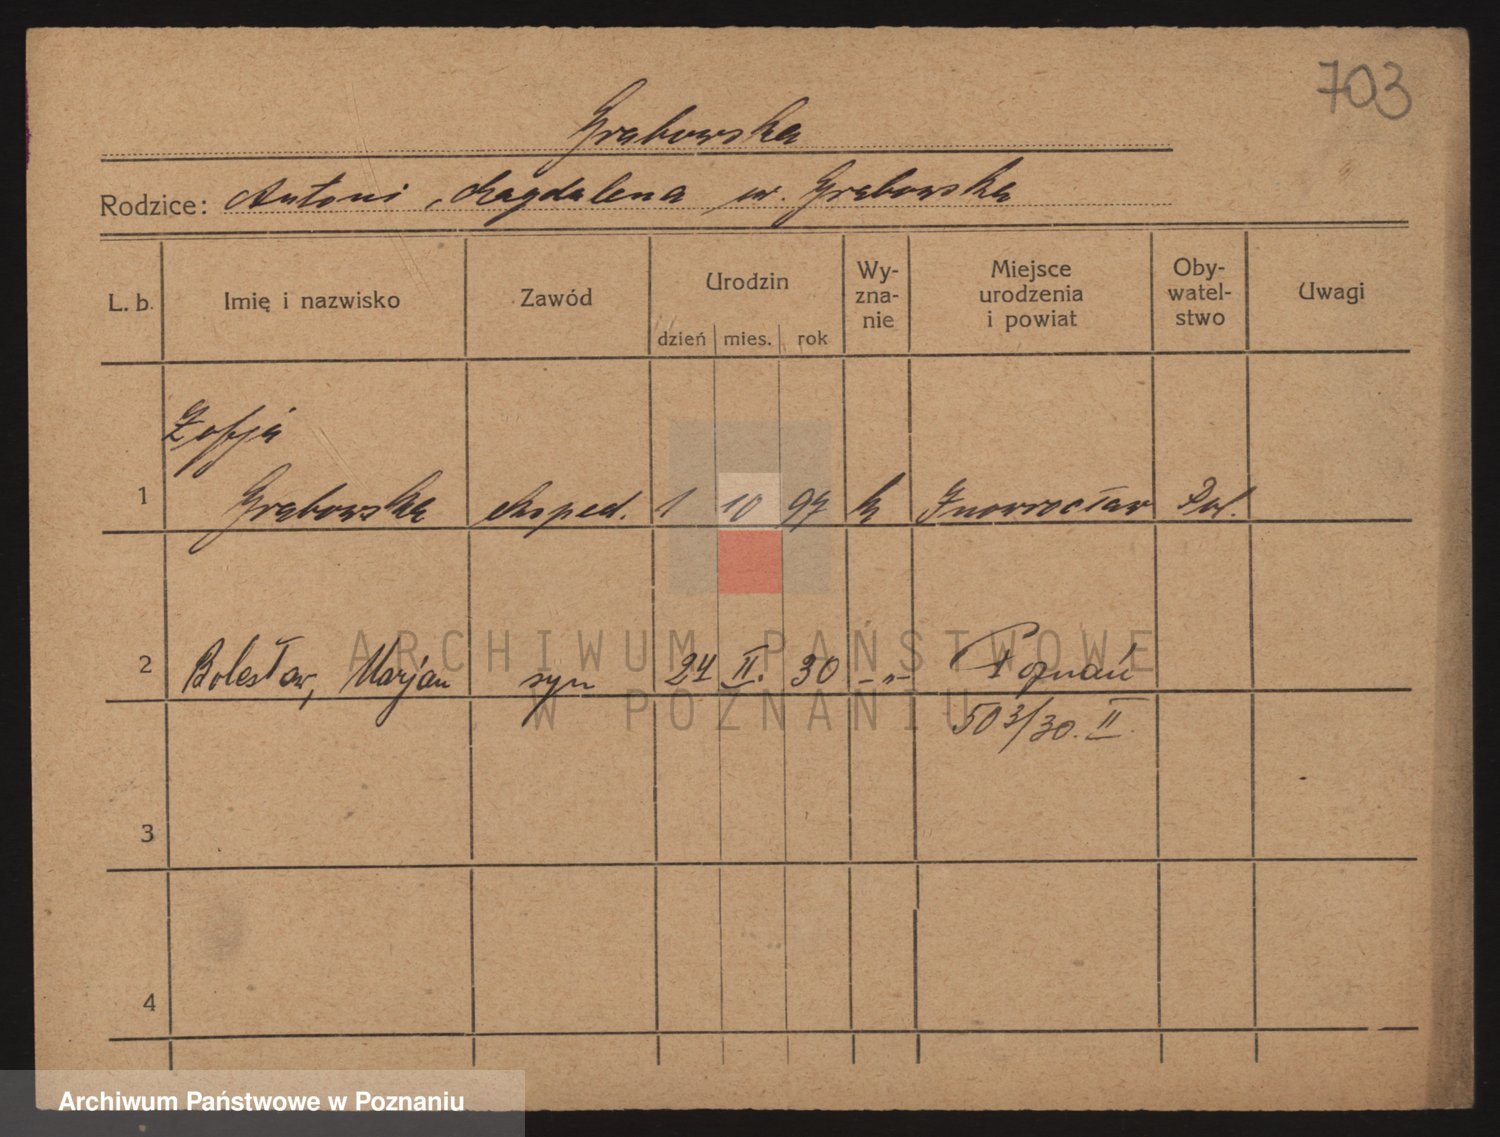 703
Grabowska
Rodzice: Antoni, Magdalena ur. Grabowska
L. b. Imię i nazwisko Zawód Urodzin dzień mies. rok Wy-zna-nie Miejsce urodzenia i powiat Oby-watel-stwo Uwagi
Zofja
1 Grabowska eksped. 1 10 97 k Inowrocław Pol.
2 Bolesław, Marjan syn 24 II. 30 -„- Poznań
503/30. II
3
4
ARCHIWUM PAŃSTWOWE
W POZNANIU
Archiwum Państwowe w Poznaniu